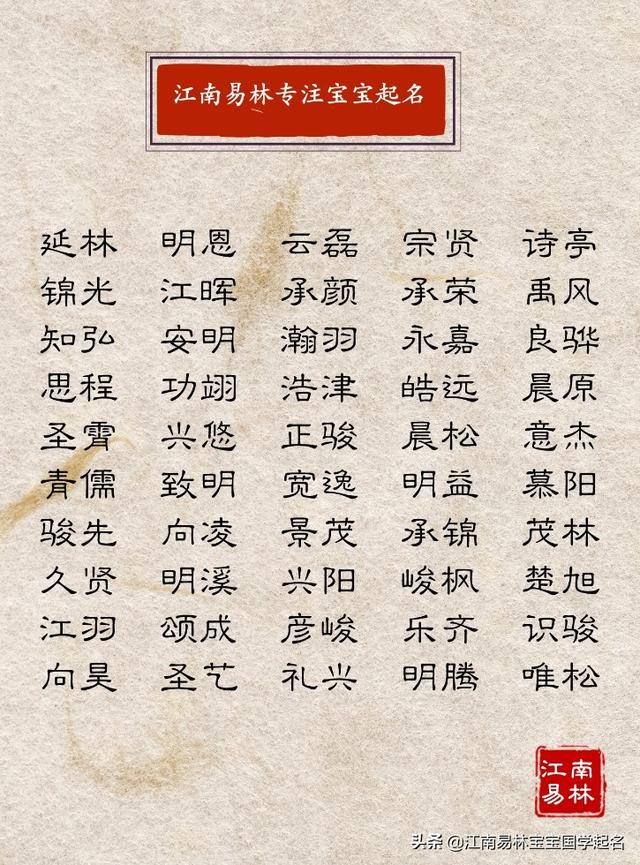 江南易林专注宝宝起名
延林 明恩 云磊 宗贤 诗亭
锦光 江晖 承颜 承荣 禹风
知弘 安明 瀚羽 永嘉 良骅
思程 功翊 浩津 皓远 晨原
圣霄 兴悠 正骏 晨松 意杰
青儒 致明 宽逸 明益 慕阳
骏先 向凌 景茂 承锦 茂林
久贤 明溪 兴阳 峻枫 楚旭
江羽 颂成 彦峻 乐齐 识骏
向昊 圣艺 礼兴 明腾 唯松
江南
易林
头条 @江南易林宝宝国学起名